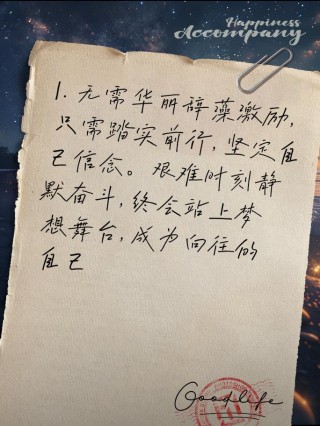 Happiness
Accompany
1. 无需华丽辞藻激励,
只需踏实前行, 坚定自
己信念。艰难时刻静
默奋斗, 终会站上梦
想舞台, 成为向往的
自己
Goodlife